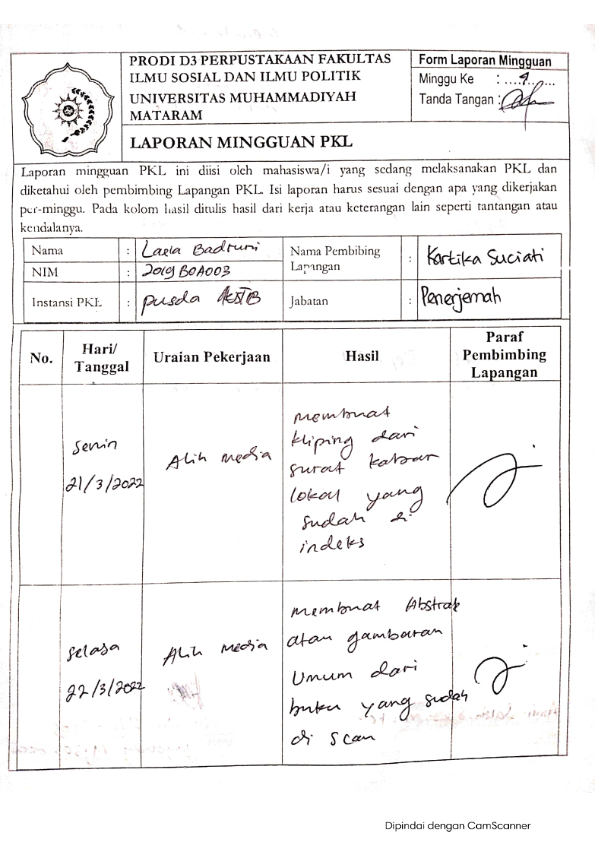 PRODI D3 PERPUSTAKAAN FAKULTAS
ILMU SOSIAL DAN ILMU POLITIK
UNIVERSITAS MUHAMMADIYAH
MATARAM
LAPORAN MINGGUAN PKL
Form Laporan Mingguan
Minggu Ke :
Tanda Tangan :
Laporan mingguan PKL ini diisi oleh mahasiswa/i yang sedang melaksanakan PKL dan
diketahui oleh pembimbing Lapangan PKL. Isi laporan harus sesuai dengan apa yang dikerjakan
per-minggu. Pada kolom hasil ditulis hasil dari kerja atau keterangan lain seperti tantangan atau
kendalanya.
Nama : Laela Badruni
NIM : 2019B0A003
Instansi PKL : pusda
Nama Pembibing
Lapangan : Kartika Suciati
Jabatan : Penerjemah
No.
Hari/
Tanggal
Uraian Pekerjaan
Hasil
Paraf
Pembimbing
Lapangan
Senin
21/3/2022
Alih media
membuat
kliping dari
surat kabar
lokal yang
sudah di
indeks
selasa
22/3/2022
Alih media
membuat Abstrak
atau gambaran
Umum dari
buku yang sudah
di scan
Dipindai dengan CamScanner